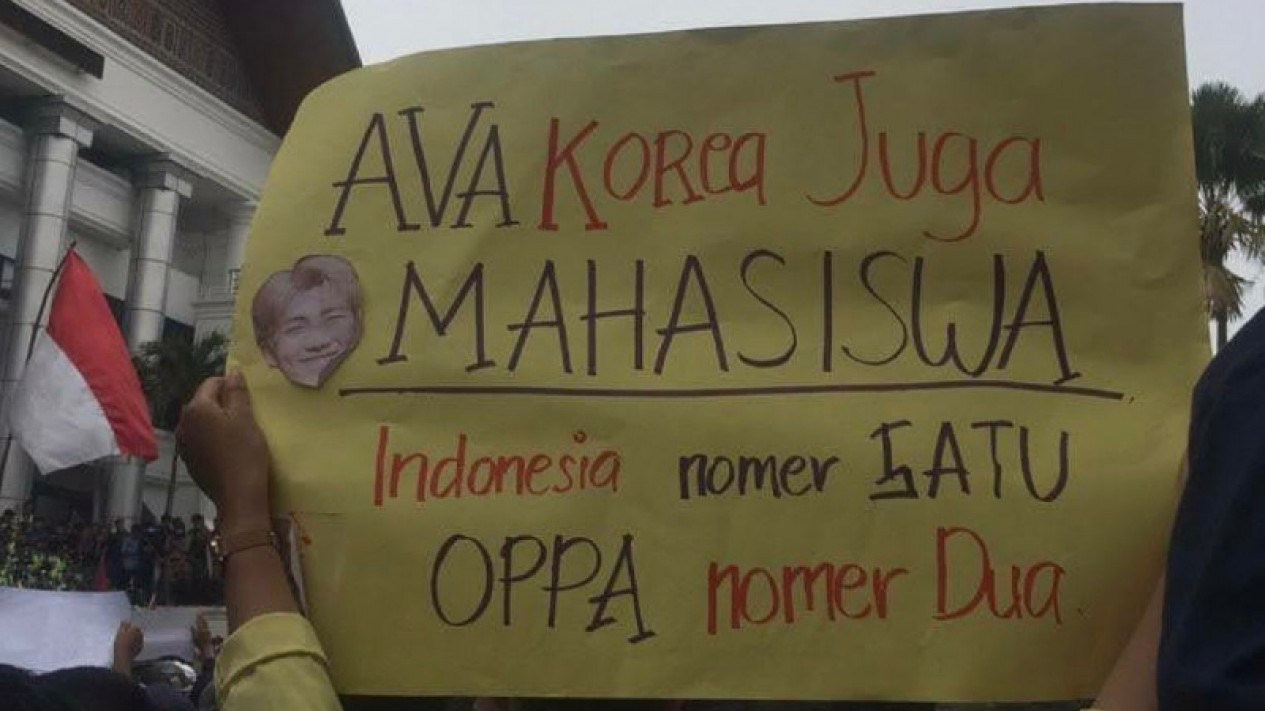 AVA Korea Juga
MAHASISWA
Indonesia nomer SATU
OPPA nomer Dua.